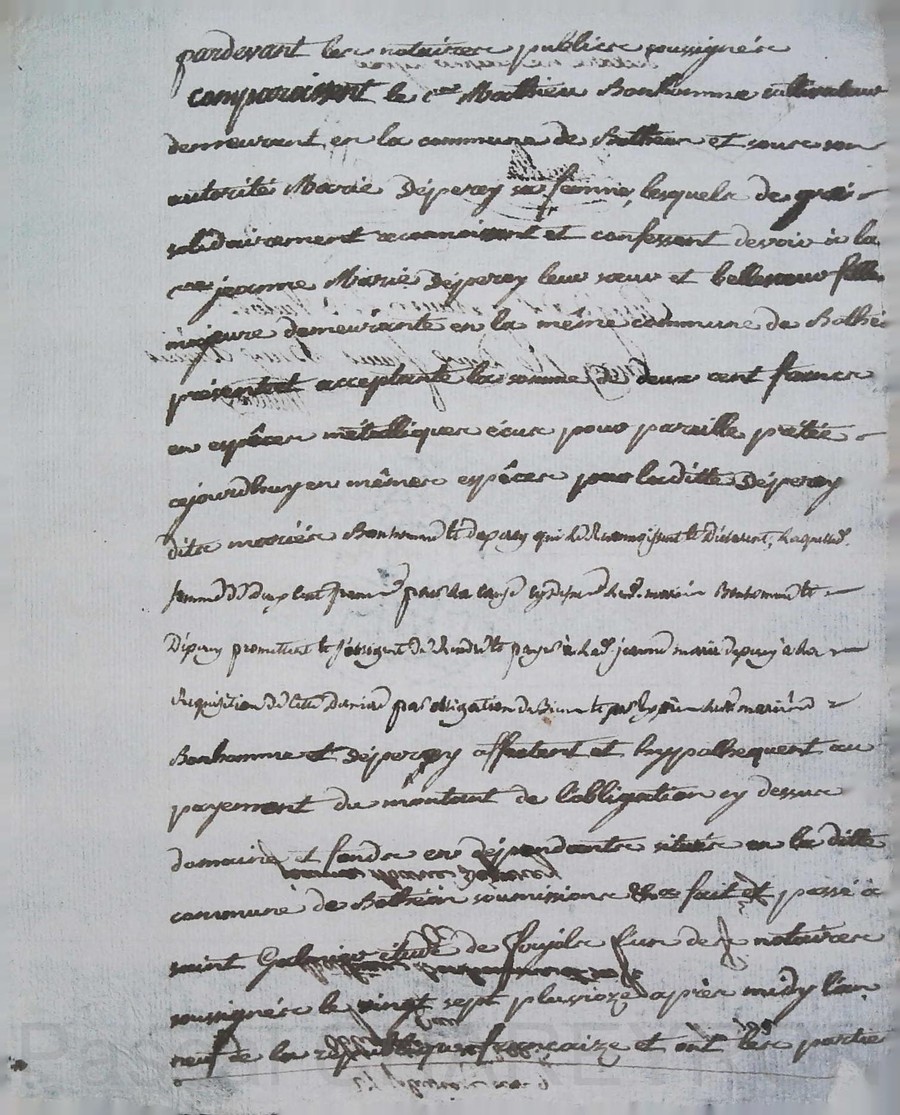 pardevant les notaires publics soussignés
comparaissent le c.en Mathieu Bonhomme cultivateur
demeurant en la commune de Bothéon et sous son
autorité Marie Déperey sa femme, lesquels de gré
solidairement reconnaissent et confessent devoir à la
c.enne jeanne Marie Déperey leur sœur et bellesœur fille
majeure demeurante en la même commune de Bothéon
présente et acceptante la somme de deux cent francs
en espèces métalliques écus pour pareille prétée
cejourdhuy en mêmes espèces par laditte Déperey
dits mariés Bonhomme et deperey qui le reconnaissent et déclarent, laquelle
somme de deux cent francs lesd. mariés Bonhomme et
Déperey promettent et s'obligent de rendre et payer à lad. jeanne marie deperey à la
requisition de cette derniere par obligation de Biens et lesd. mariés
Bonhomme et Déperey affectent et hypothequent au
payement du montant de l'obligation cy dessus
domaine et fonds en dépendants situés en la ditte
commune de Bothéon soumissions &ca fait et passé à
saint Galmier étude de l'un des notaires
soussignés le vingt sept pluviôze après midy l'an
neuf de la republique françaize et ont les parties